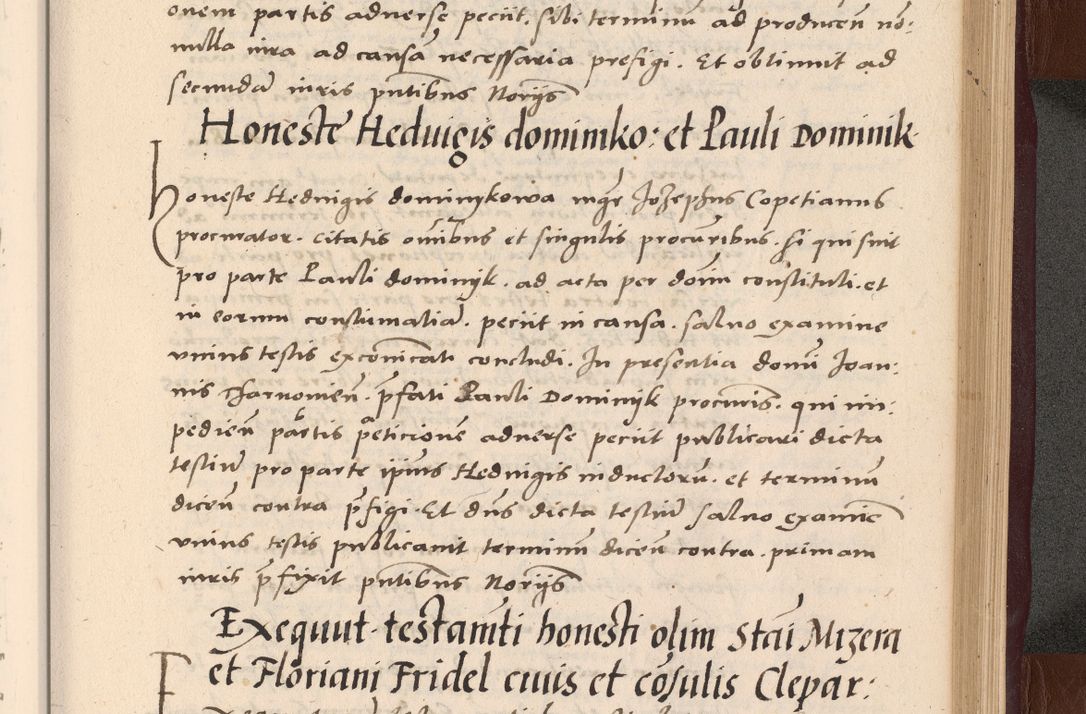 onem partis adverse peciit. sibi terminū ad producen̄ nō:
nulla iura ad causā necessaria prefigi. Et obtinuit ad
secundā iuris pn̄tibus Norijs
Honeste Heduigis dominiko: et Pauli Dominik
Honeste Heduigis dominykowa mgr̄ Jozephus Copetianus
procurator. citatis om̄ibus et singulis procur̄ibus. si qui sint
pro parte Pauli dominyk. ad acta per dom̄ constituti. et
in eorum contumatiā. peciit in causa. saluo examine
vnius testis exconi̅cati concludi. In presentia dom̄i Joan:
nis prefati Pauli Dominyk procur̄is. qui im:
pedien̄ partis peticionē aduerse peciit publicari dicta
testiū pro parte ip̄ius Heduigis inductorū. et terminū
dicen̄ contra p̄figi. Et dn̄s dicta testiū saluo examīe
vnius testis publicauit terminū dicen̄ contra. primam
iuris p̄fixit pn̄tibus Norijs
Exequut. testam̄ti honesti olim Stāi Mizera
et Floriani Fridel ciuis et cōsulis Clepar: